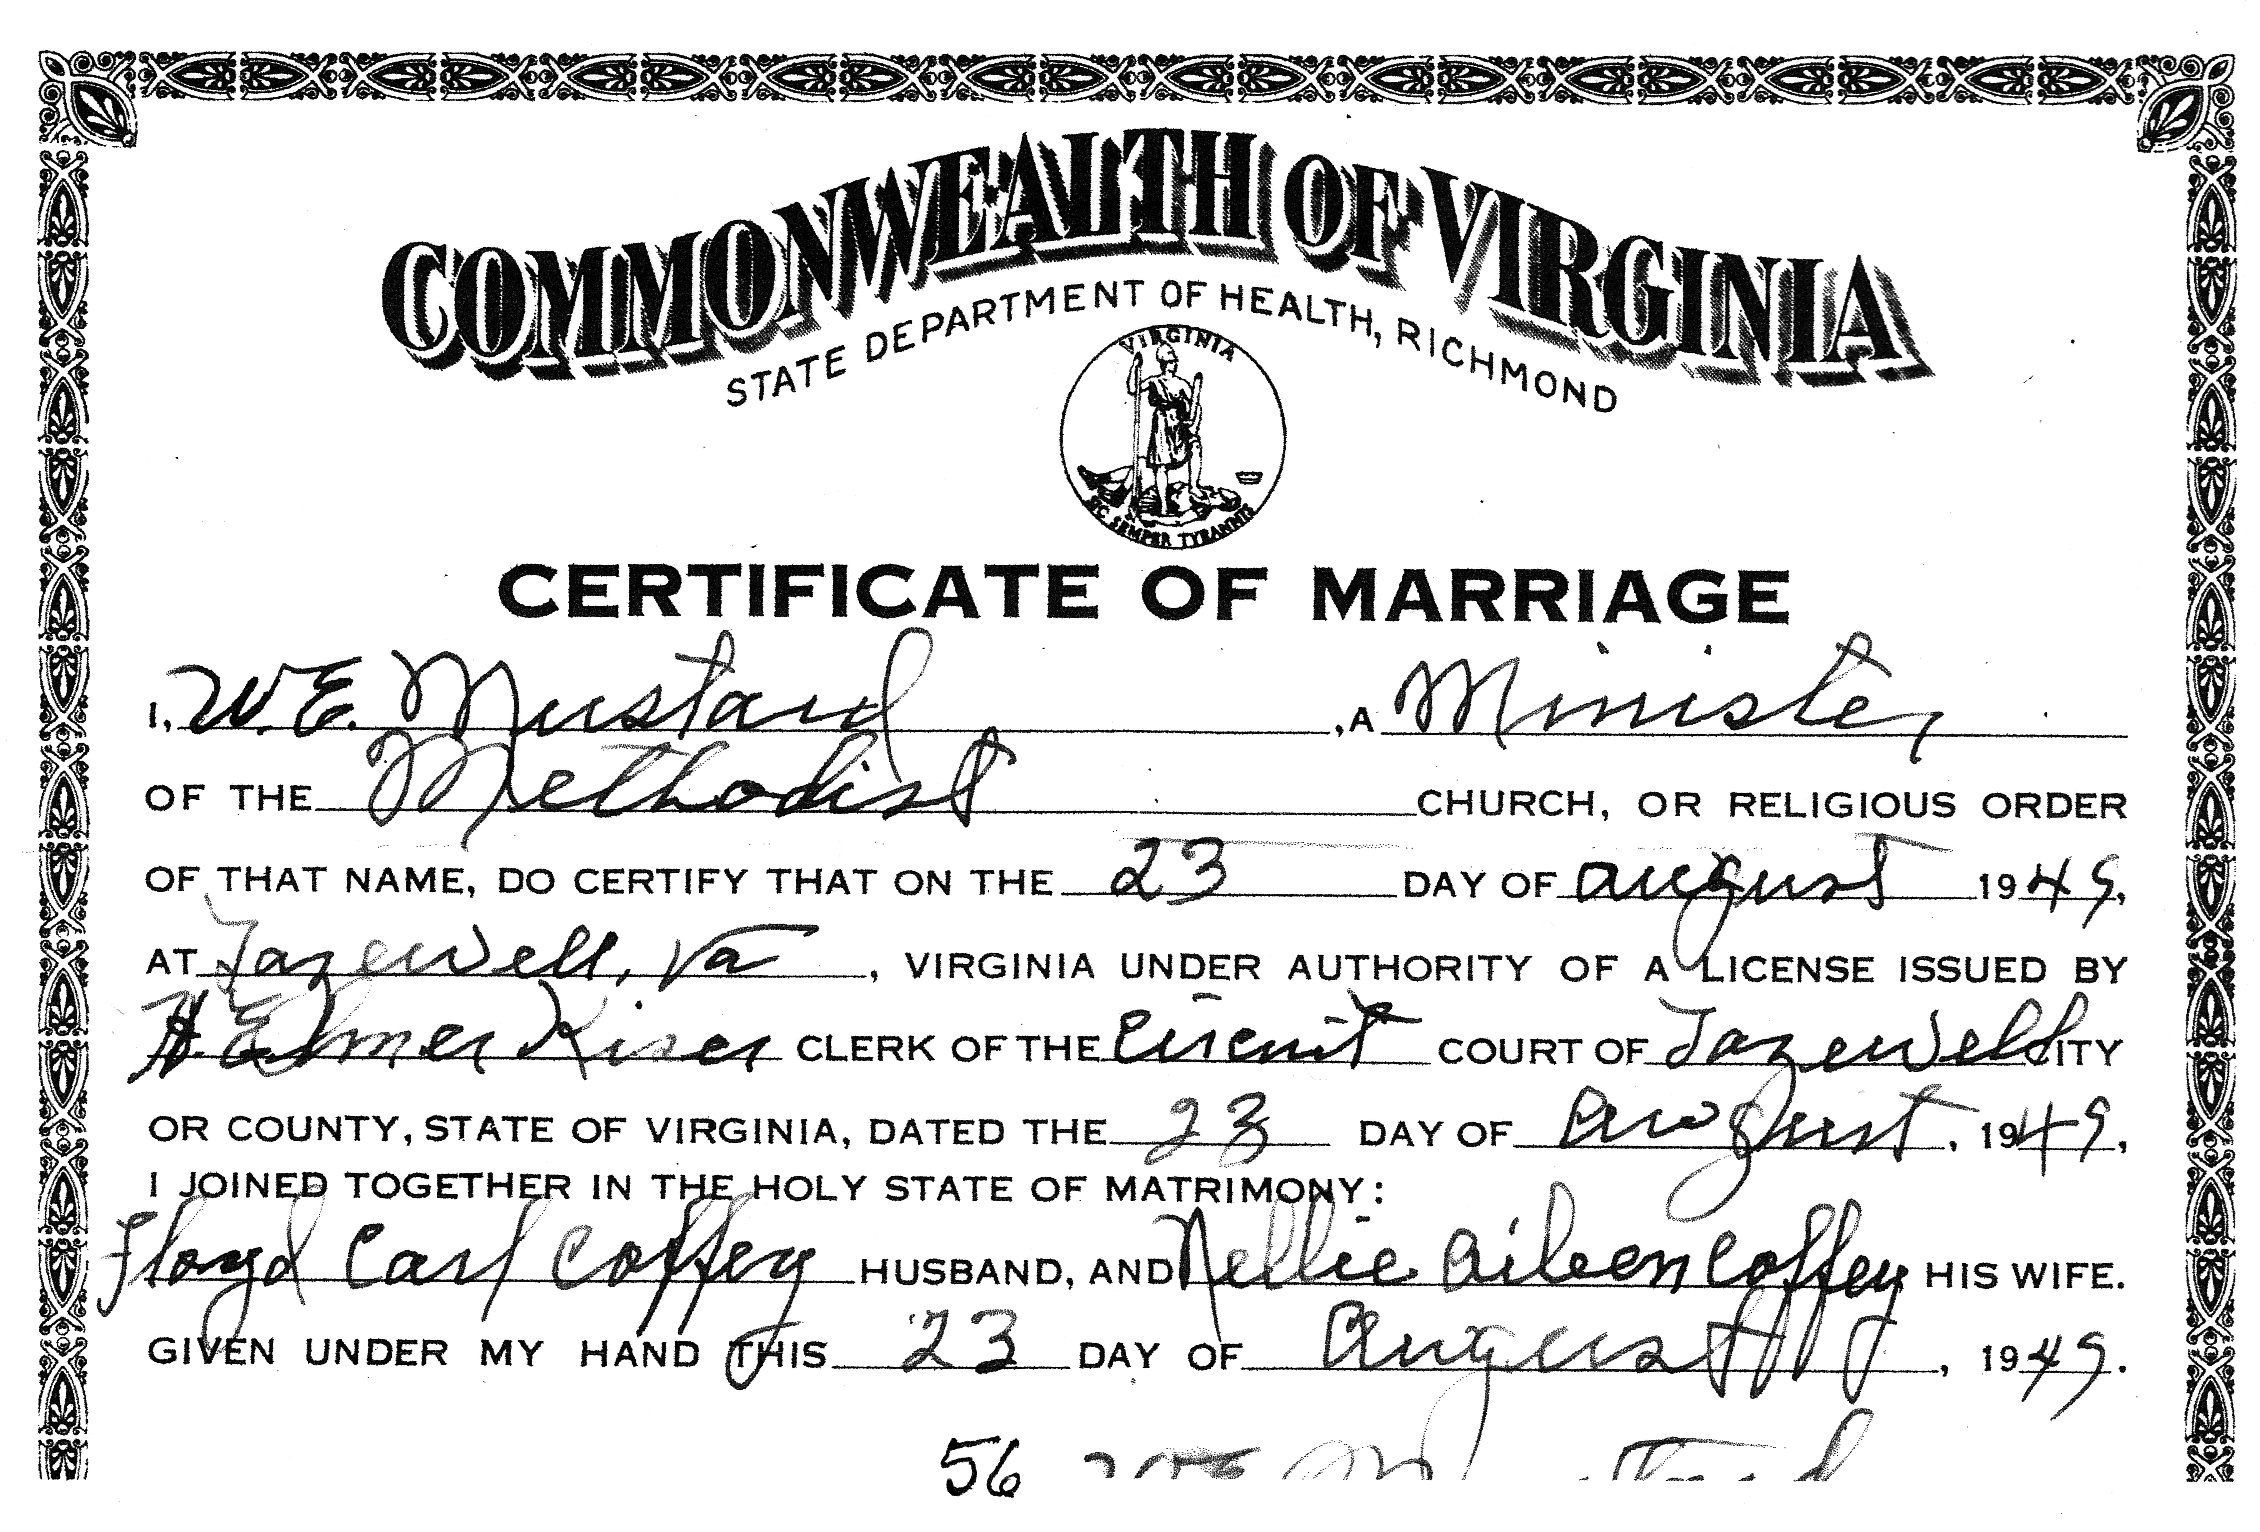 COMMONWEALTH OF VIRGINIA
STATE DEPARTMENT OF HEALTH, RICHMOND
VIRGINIA
SIC SEMPER TYRANNIS
CERTIFICATE OF MARRIAGE
I, W.E. Mustard, A Minister
OF THE Methodist CHURCH, OR RELIGIOUS ORDER
OF THAT NAME, DO CERTIFY THAT ON THE 23 DAY OF August 1949,
AT Tazewell, Va, VIRGINIA UNDER AUTHORITY OF A LICENSE ISSUED BY
H. Elmer Kiser CLERK OF THE Circuit COURT OF Tazewell CITY
OR COUNTY, STATE OF VIRGINIA, DATED THE 23 DAY OF August, 1949,
I JOINED TOGETHER IN THE HOLY STATE OF MATRIMONY:
Floyd Carl Coffey HUSBAND, AND Nellie Aileen Coffey HIS WIFE.
GIVEN UNDER MY HAND THIS 23 DAY OF August, 1949.
56